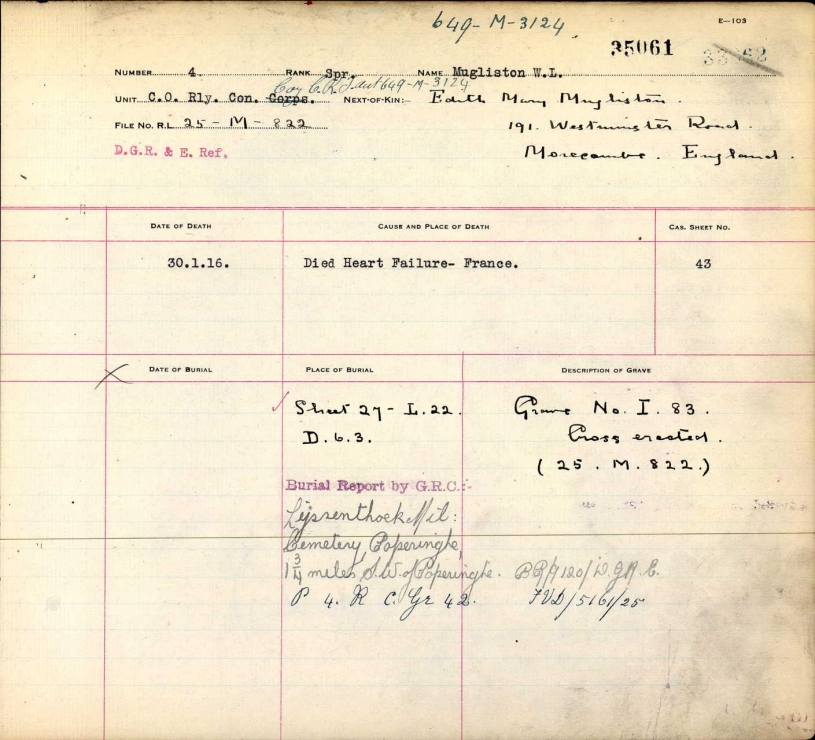 649-M-3124
E-103
35061
NUMBER 4. RANK Spr. NAME Mugliston W.L.
649-M-3124
UNIT C.O. Rly. Con. Corps. NEXT-OF-KIN:- Edith Mary Mugliston.
FILE NO. R.L. 25-M-822 191. Westminster Road.
D.G.R. & E. Ref. Morecambe. England.
DATE OF DEATH CAUSE AND PLACE OF DEATH CAS. SHEET NO.
30.1.16. Died Heart Failure- France. 43
DATE OF BURIAL PLACE OF BURIAL DESCRIPTION OF GRAVE
Sheet 27-L.22. Grave No. I. 83.
D.6.3. Cross erected.
(25. M. 822.)
Burial Report by G.R.C.:-
Lijssenthoek Mil:
Cemetery, Poperinghe,
1 3/4 miles, S.W. of Poperinghe.
P 4. R C. Gr 42.